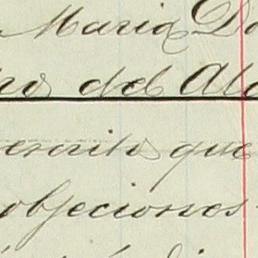 Maria Do
ros del Ala
escrito que
objeciones